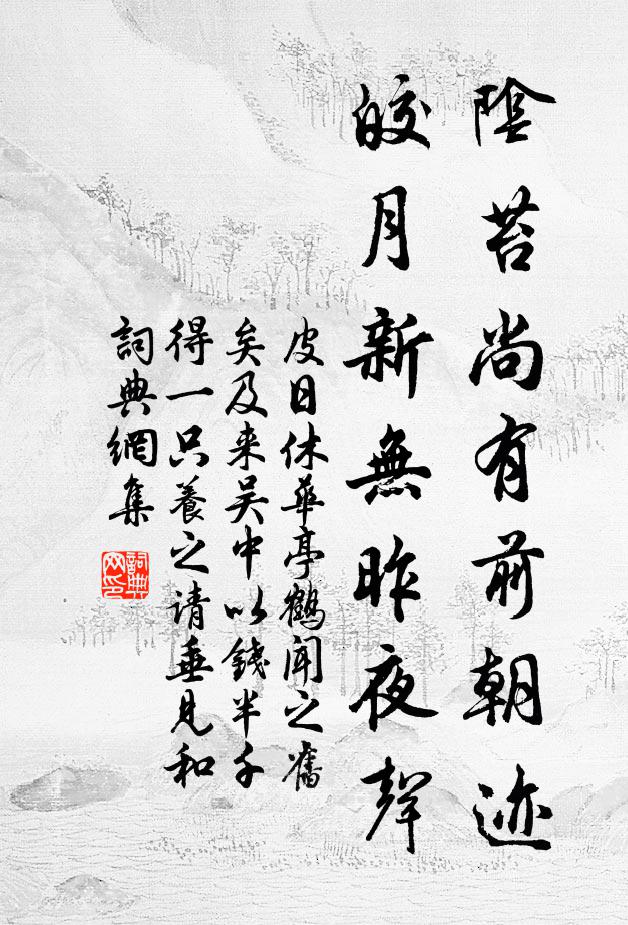 陰苔尚有前朝迹
皎月新無昨夜聲
皮日休華亭鶴聞之舊
矣及来吴中以錢半千
得一只養之请垂見和
詞典網集
詞典网印